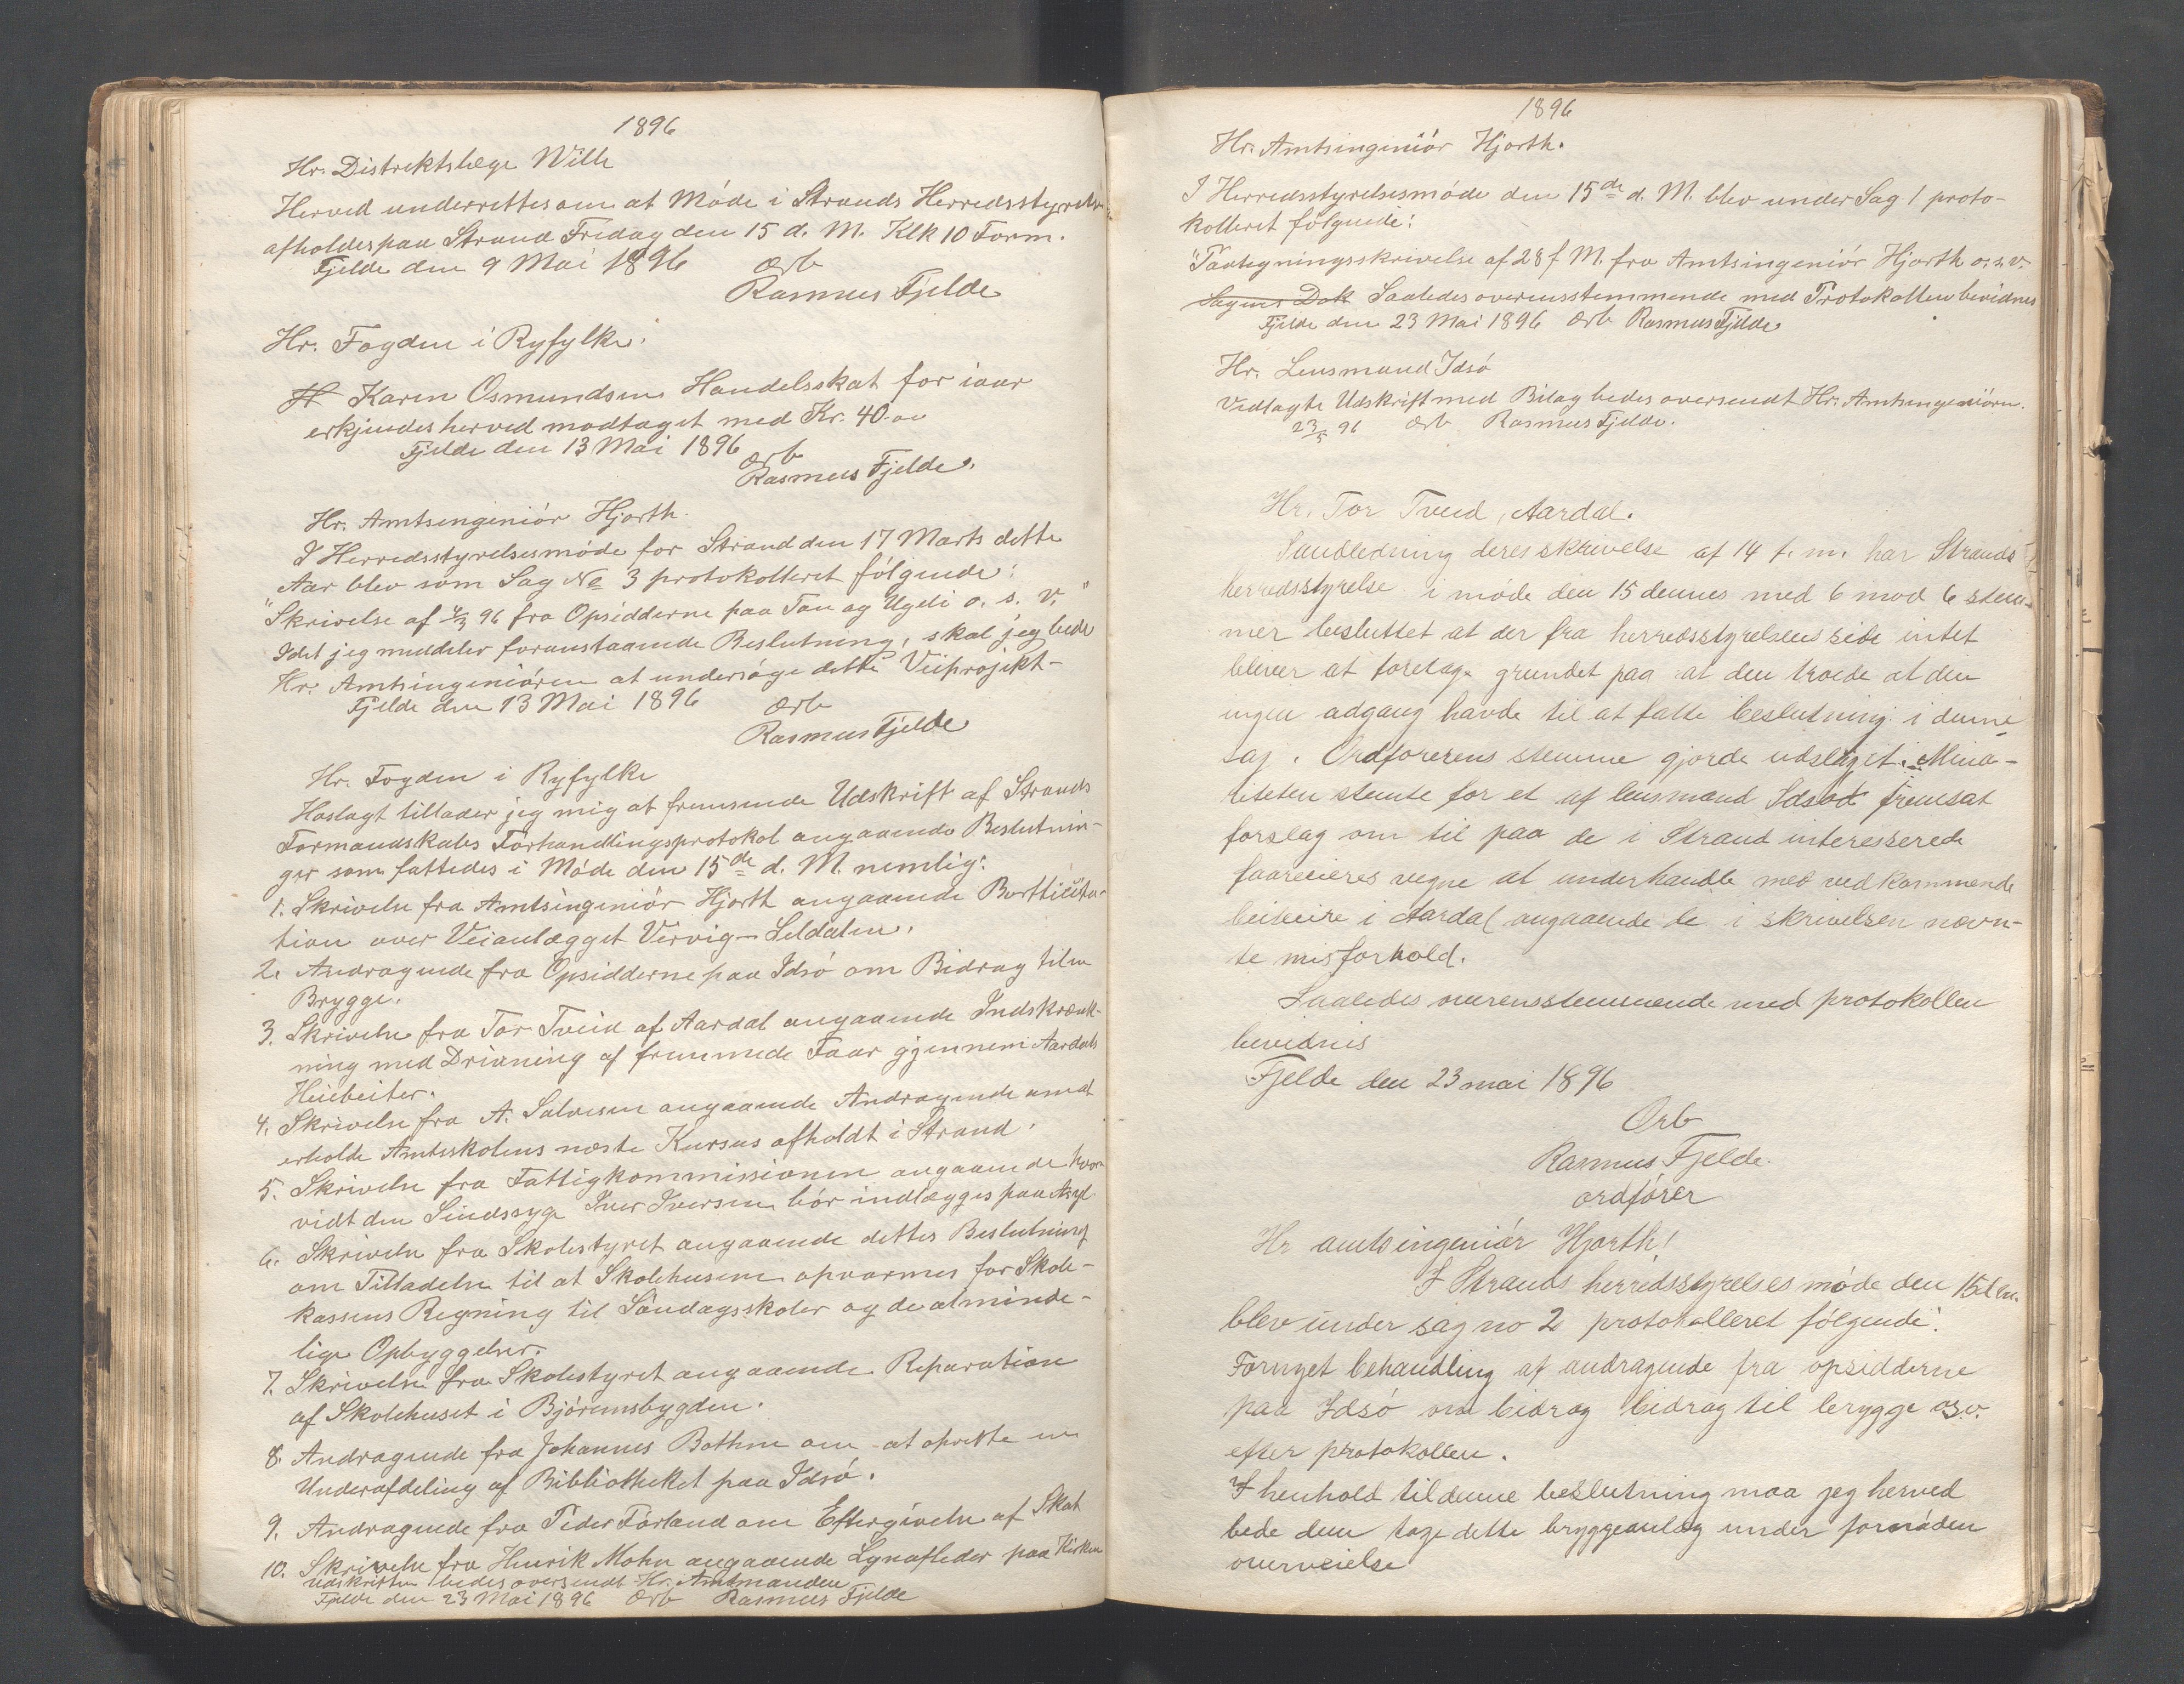 1896
Hr. Distriktslæge Wille
Herved underrettes om at Møde i Strands Herredsstyrelse
afholdes paa Strand Fredag den 15 d. M. Klk 10 Form.
Fjelde den 9 Mai 1896 Ærb
Rasmus Fjelde
Hr. Fogden i Ryfylke.
Karen Osmundsens Handelsskat for iaar
erkjendes herved modtaget med Kr. 40.00
Fjelde den 13 Mai 1896
Ærb
Rasmus Fjelde.
Hr. Amtsingeniør Hjorth.
I Herredsstyrelsesmøde for Strand den 17 Marts dette
Aar blev som Sag No 3 protokolleret følgende:
"Skrivelse af 4/3 96 fra Opsidderne paa Tau og Ugeli o. s. v."
Idet jeg meddeler foranstaaende Beslutning, skal jeg bede
Hr. Amtsingeniøren at undersøge dette Veiprojekt-
Fjelde den 13 Mai 1896 Ærb
Rasmus Fjelde
Hr. Fogden i Ryfylke
Hoslagt tillader jeg mig at fremsende Udskrift af Strands
Formandskabs Forhandlingsprotokol angaaende Beslutnin-
ger som fattedes i Møde den 15de d. M. nemlig:
1. Skrivelse fra Amtsingeniør Hjorth angaaende Bortlicita-
tion over Veianlægget Vervig-Leldalen.
2. Andragende fra Opsidderne paa Idsø om Bidrag til en
Brygge.
3. Skrivelse fra Tor Tveid af Aardal angaaende Indskrænk-
ning med Drivning af fremmede Faar gjennem Aardals
Heiebeiter.
4. Skrivelse fra A. Salvesen angaaende Andragende om at
erholde Amtsskolens næste Kursus afholdt i Strand.
5. Skrivelse fra Fattigkommissionen angaaende hvor
vidt den Sindssyge Iver Iversen bør indlægges paa Asyl
6. Skrivelse fra Skolestyret angaaende dettes Beslutning
om Tilladelse til at Skolehusene opvarmes for Skole-
kassens Regning til Søndagsskoler og de alminde-
lige Opbyggelser.
7. Skrivelse fra Skolestyret angaaende Reparation
af Skolehuset i Bjørømsbygden.
8. Andragende fra Johannes Bothne om at oprette en
Underafdeling af Bibliotheket paa Idsø.
9. Andragende fra Peder Førland om Eftergivelse af Skat
10. Skrivelse fra Henrik Mohn angaaende Lynafleder paa Kirken
Udskriften bedes oversendt Hr. Amtmanden
Fjelde den 23 Mai 1896 Ærb Rasmus Fjelde
1896
Hr. Amtsingeniør Hjorth.
I Herredsstyrelsesmøde den 15de d. M. blev under Sag 1 proto-
kolleret følgende:
"Paategningsskrivelse af 28 f M. fra Amtsingeniør Hjorth o. s. v.
Sagens Dok Saaledes overensstemmende med Protokollen bevidnes
Fjelde den 23 Mai 1896 Ærb Rasmus Fjelde.
Hr. Lensmand Idsø
Vedlagte Udskrift med Bilag bedes oversendt Hr. Amtsingeniøren.
23/5 96 Ærb Rasmus Fjelde.
Hr. Tor Tveid, Aardal.
I anledning deres skrivelse af 14 f. m. har Strands
herredsstyrelse i møde den 15 dennes med 6 mod 6 stem-
mer besluttet at der fra herredsstyrelsens side intet
bliver at foretage grundet paa at den troede at den
ingen adgang havde til at fatte beslutning i denne
sag. Ordførerens stemme gjorde udslaget. Mino-
riteten stemte for et af lensmand Idsød fremsat
forslag om til paa de i Strand interesserede
faareeieres vegne at underhandle med vedkommende
beiteeire i Aardal angaaende de i skrivelsen nævn-
te misforhold.
Saaledes overensstemmende med protokollen
bevidnes
Fjelde den 23 mai 1896
Ærb
Rasmus Fjelde.
ordfører
Hr amtsingeniør Hjorth!
I Strands herredsstyrelses møde den 15 d m.
blev under sag no 2 protokolleret følgende:
Fornyet behandling af andragende fra opsidderne
paa Idsø om bidrag bidrag til brygge osv.
efter protokollen.
I henhold til denne beslutning maa jeg herved
bede dem tage dette bryggeanlæg under fornøden
overveielse